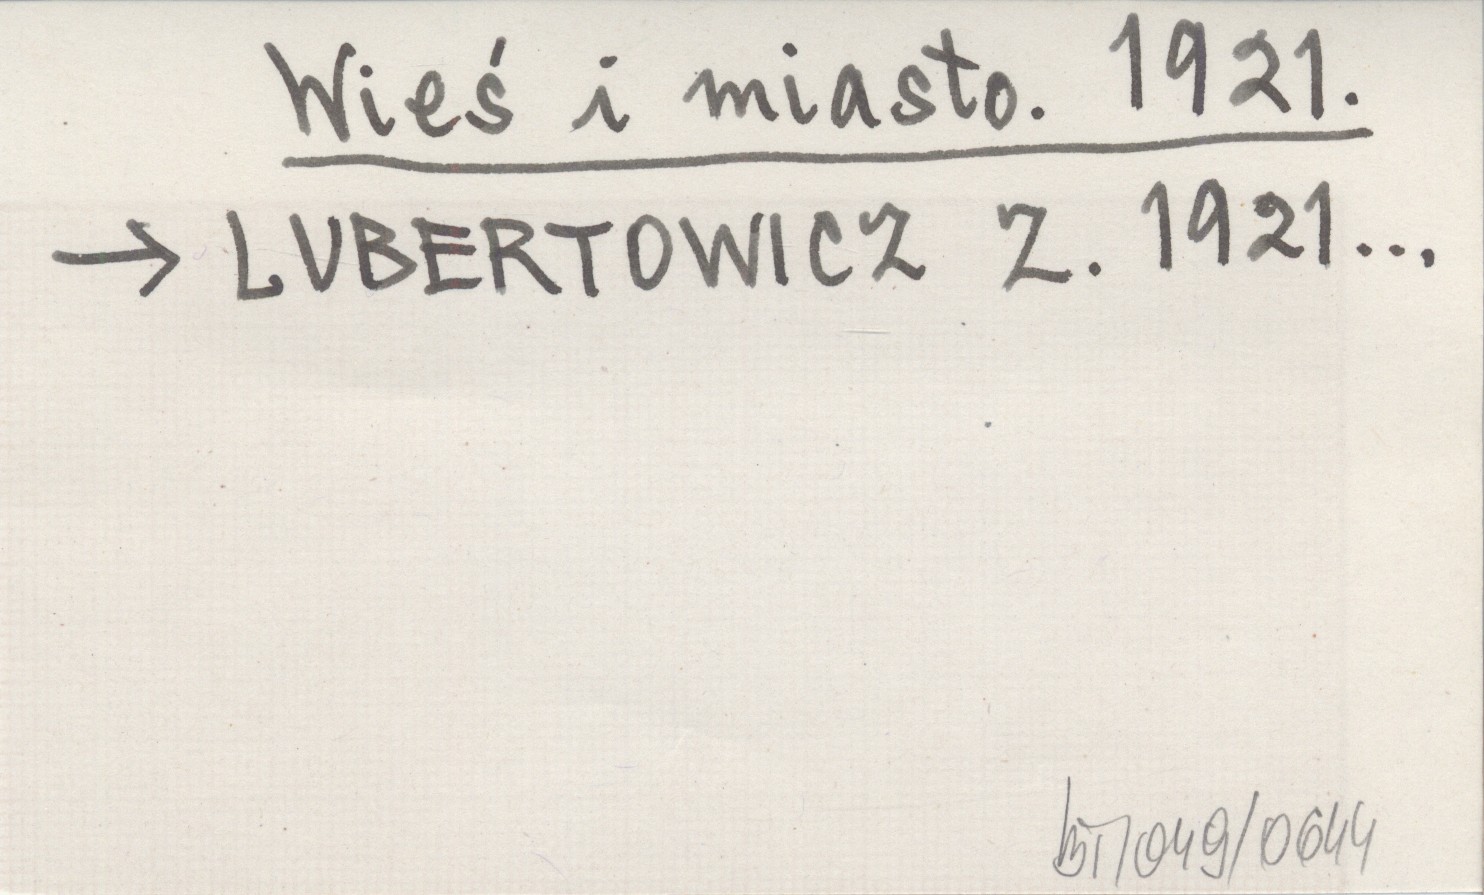 Wieś i miasto. 1921.
→ LUBERTOWICZ Z. 1921...
BT/049/0644